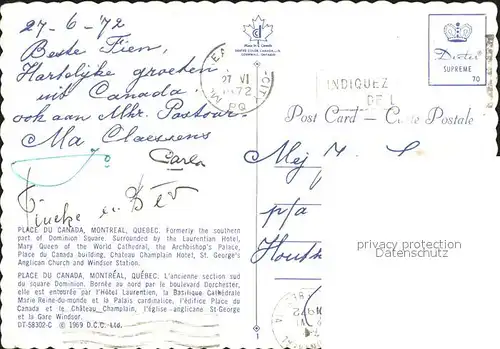 27-6-72
Beste Fien,
Hartelijke groeten
uit Canada.
ook aan Mhr. Pastoor.
Ma Claessens
Carla
Made in Canada
27 VI
1972
PQ
INDIQUEZ
DE L
Dexter
SUPREME
70
Post Card — Carte Postale
Mej
p/a
privacy protection
Datenschutz
PLACE DU CANADA, MONTREAL, QUEBEC. Formerly the southern
part of Dominion Square. Surrounded by the Laurentian Hotel,
Mary Queen of the World Cathedral, the Archbishop's Palace,
Place du Canada building, Chateau Champlain Hotel, St. George's
Anglican Church and Windsor Station.
PLACE DU CANADA, MONTRÉAL, QUÉBEC. L'ancienne section sud
du square Dominion. Bornée au nord par le boulevard Dorchester,
elle est entourée par l'Hôtel Laurentien, la Basilique Cathédrale
Marie Reine-du-monde et la Palais cardinalice, l'édifice Place du
Canada et le Château Champlain, l'église anglicane St-George
et la Gare Windsor.
DT-58302-C © 1969 D.C.C. Ltd.
1